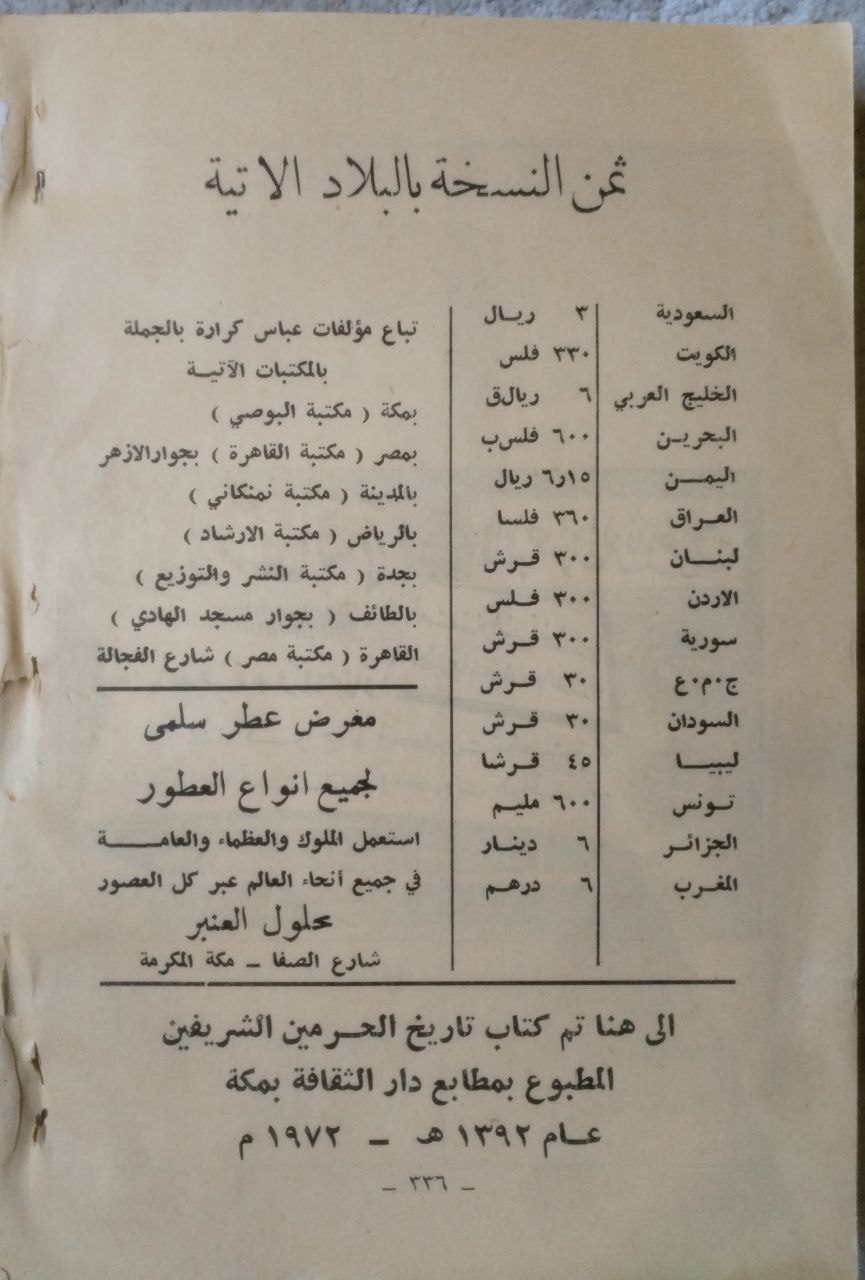 ثمن النسخة بالبلاد الاتية
السعودية ٣ ريـال
الكويت ٣٣٠ فلس
الخليج العربي ٦ ريال‌ق
البحريـن ٦٠٠ فلس‌ب
اليمـــن ١٥ر٦ ريال
العـراق ٣٦٠ فلسا
لبنـــان ٣٠٠ قـرش
الاردن ٣٠٠ فـلس
سورية ٣٠٠ قـرش
ج٠م٠ع ٣٠ قـرش
السودان ٣٠ قـرش
ليبيـــا ٤٥ قـرشا
تـونس ٦٠٠ مليـم
الجزائـر ٦ دينـار
المغـرب ٦ درهـم
تباع مؤلفات عباس كرارة بالجملة
بالمكتبات الآتيـة
بمكة ( مكتبة البوصي )
بمصر ( مكتبة القاهرة ) بجوارالازهر
بالمدينة ( مكتبة نمنكاني )
بالرياض ( مكتبة الارشاد )
بجدة ( مكتبة النشر والتوزيع )
بالطائف ( بجوار مسجد الهادي )
القاهرة ( مكتبة مصر ) شارع الفجالة
معرض عطر سلمى
لجميع انواع العطور
استعمل الملوك والعظماء والعامـــــة
في جميع أنحاء العالم عبر كل العصور
محلول العنبر
شارع الصفا ـ مكة المكرمة
الى هنا تم كتاب تاريخ الحـرمين الشريفين
المطبوع بمطابع دار الثقافة بمكة
عـام ١٣٩٢ هـ ـ ١٩٧٢ م
ـ ٣٣٦ ـ